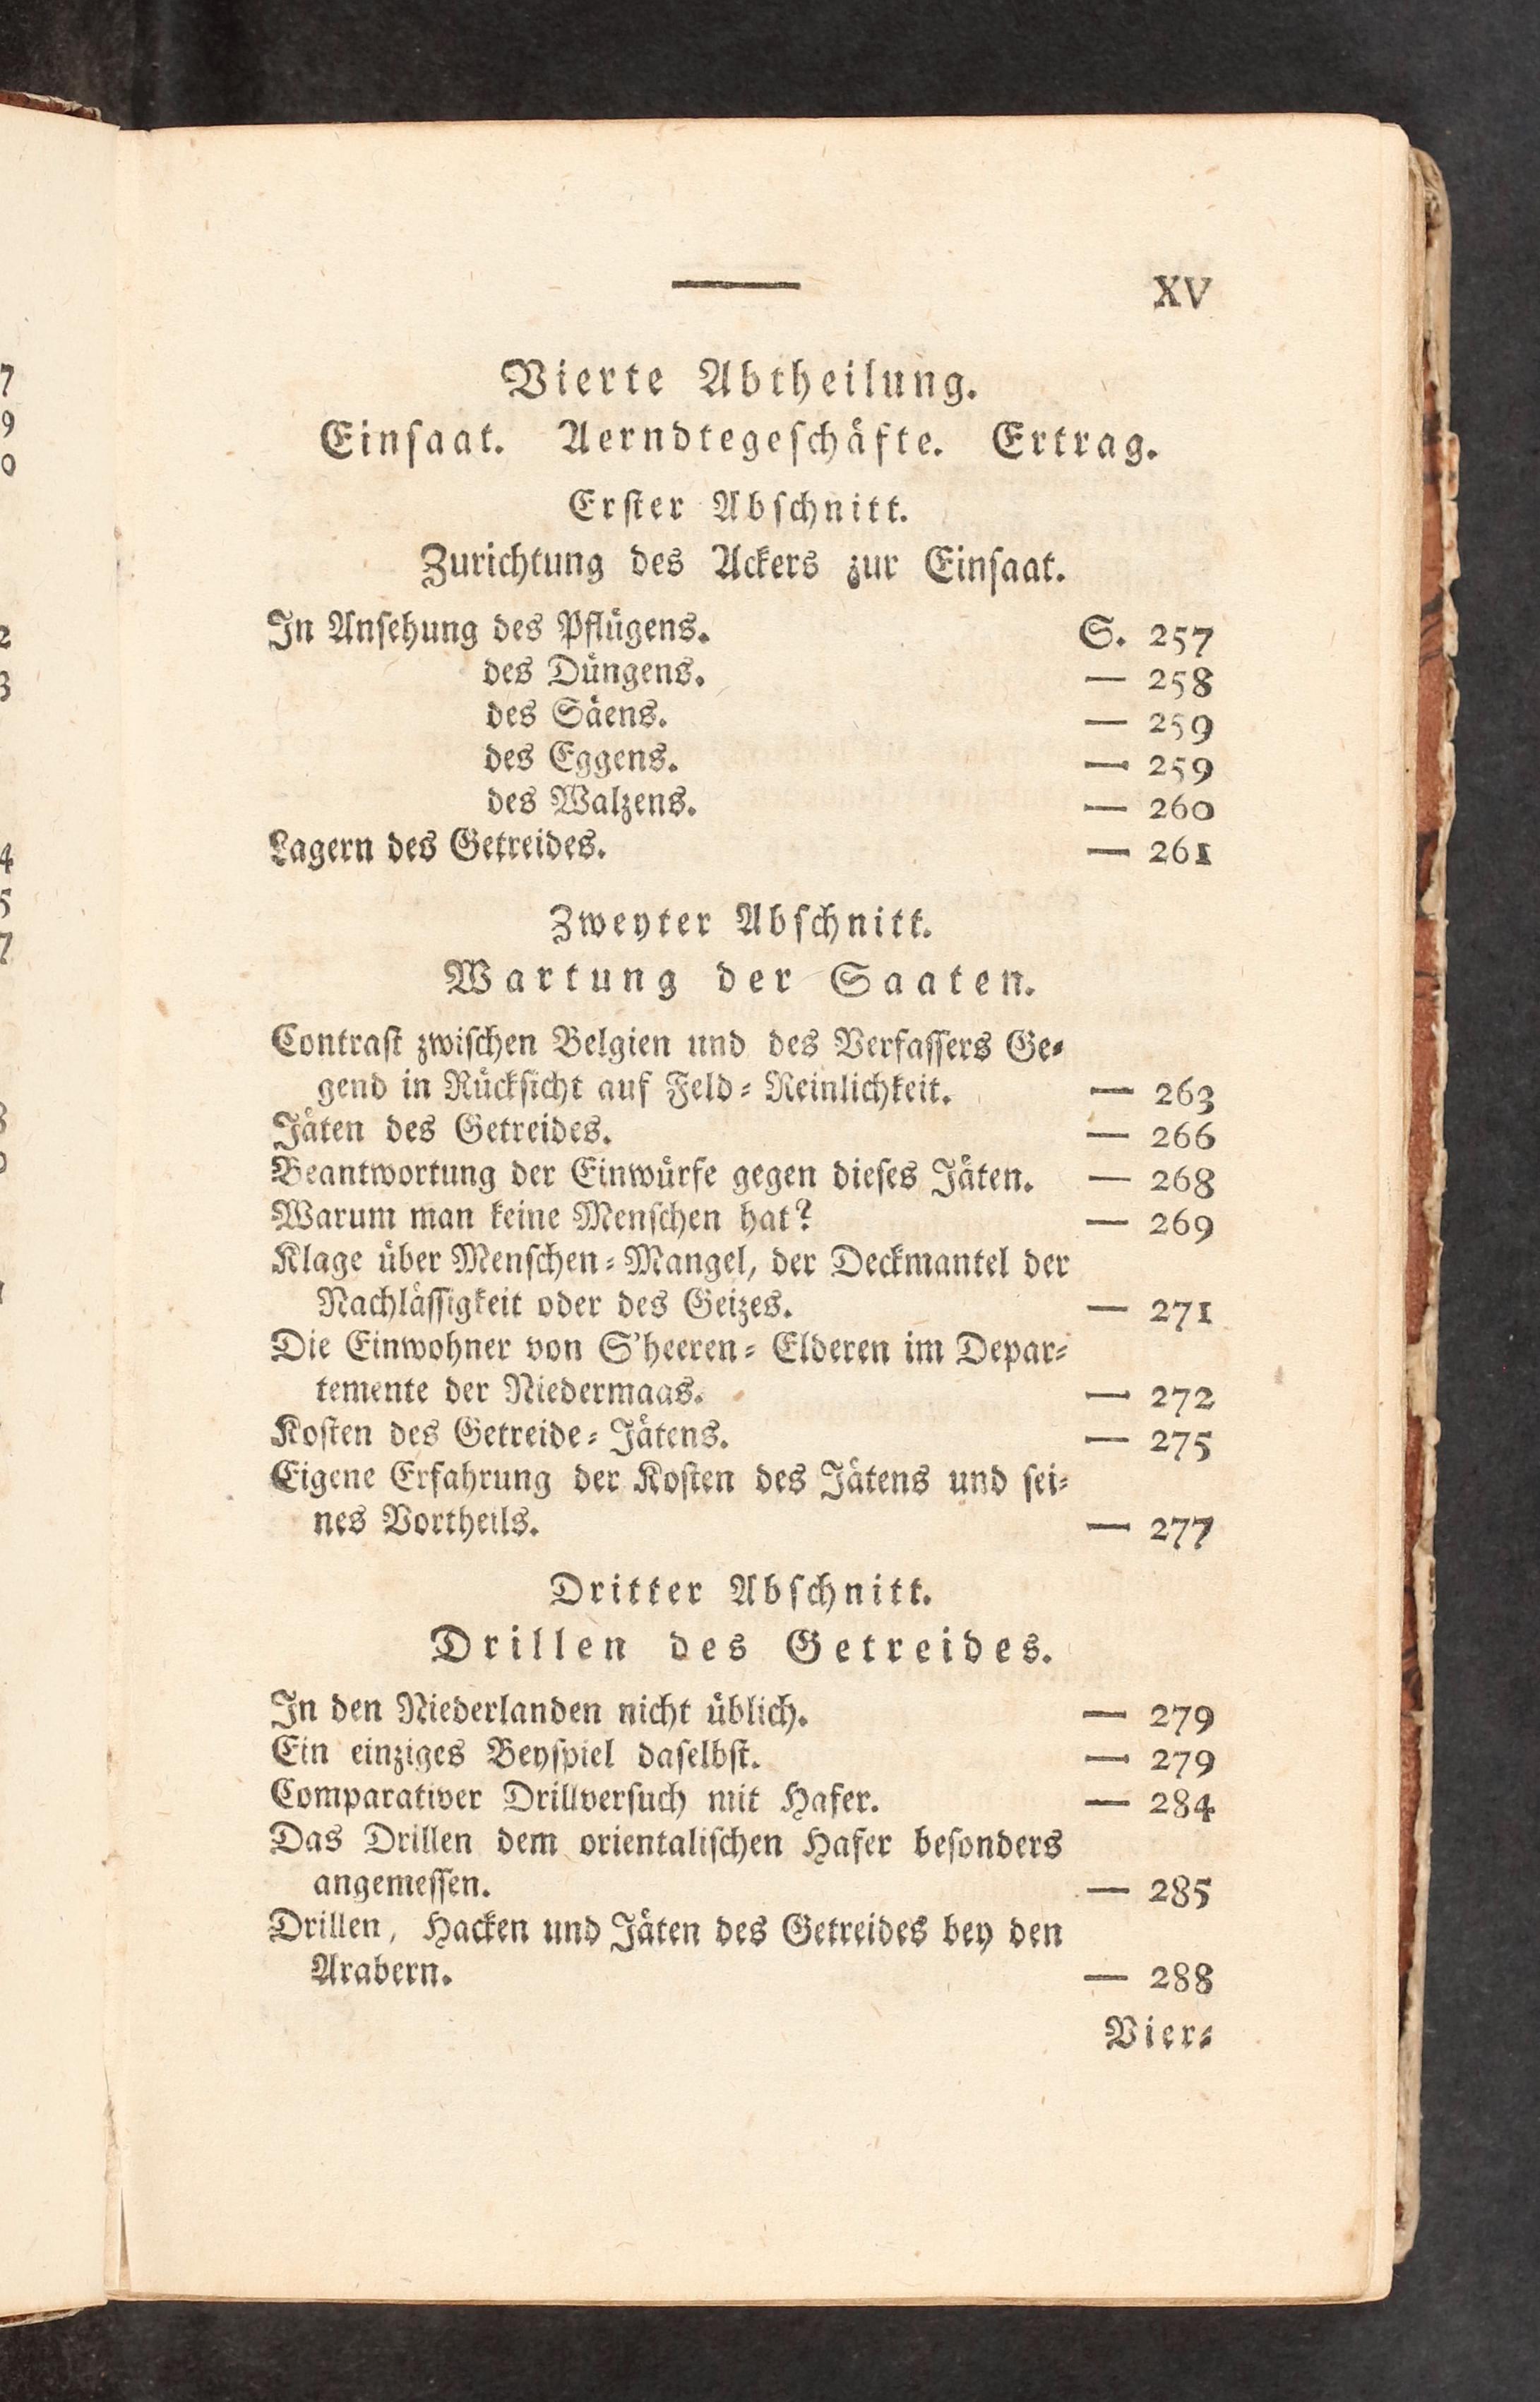 XV
Vierte Abtheilung.
Einsaat. Aerndtegeschäfte. Ertrag.
Erster Abschnitt.
Zurichtung des Ackers zur Einsaat.
In Ansehung des Pflügens. S. 257
des Düngens. — 258
des Säens. — 259
des Eggens. — 259
des Walzens. — 260
Lagern des Getreides. — 261
Zweyter Abschnitt.
Wartung der Saaten.
Contrast zwischen Belgien und des Verfassers Ge-
gend in Rücksicht auf Feld-Reinlichkeit. — 263
Jäten des Getreides. — 266
Beantwortung der Einwürfe gegen dieses Jäten. — 268
Warum man keine Menschen hat? — 269
Klage über Menschen-Mangel, der Deckmantel der
Nachlässigkeit oder des Geizes. — 271
Die Einwohner von S'heeren-Elderen im Depar-
temente der Niedermaas. — 272
Kosten des Getreide-Jätens. — 275
Eigene Erfahrung der Kosten des Jätens und sei-
nes Vortheils. — 277
Dritter Abschnitt.
Drillen des Getreides.
In den Niederlanden nicht üblich. — 279
Ein einziges Beyspiel daselbst. — 279
Comparativer Drillversuch mit Hafer. — 284
Das Drillen dem orientalischen Hafer besonders
angemessen. — 285
Drillen, Hacken und Jäten des Getreides bey den
Arabern. — 288
Vier-